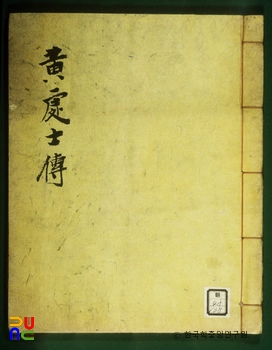 黃處士傳
© 한국학중앙연구원